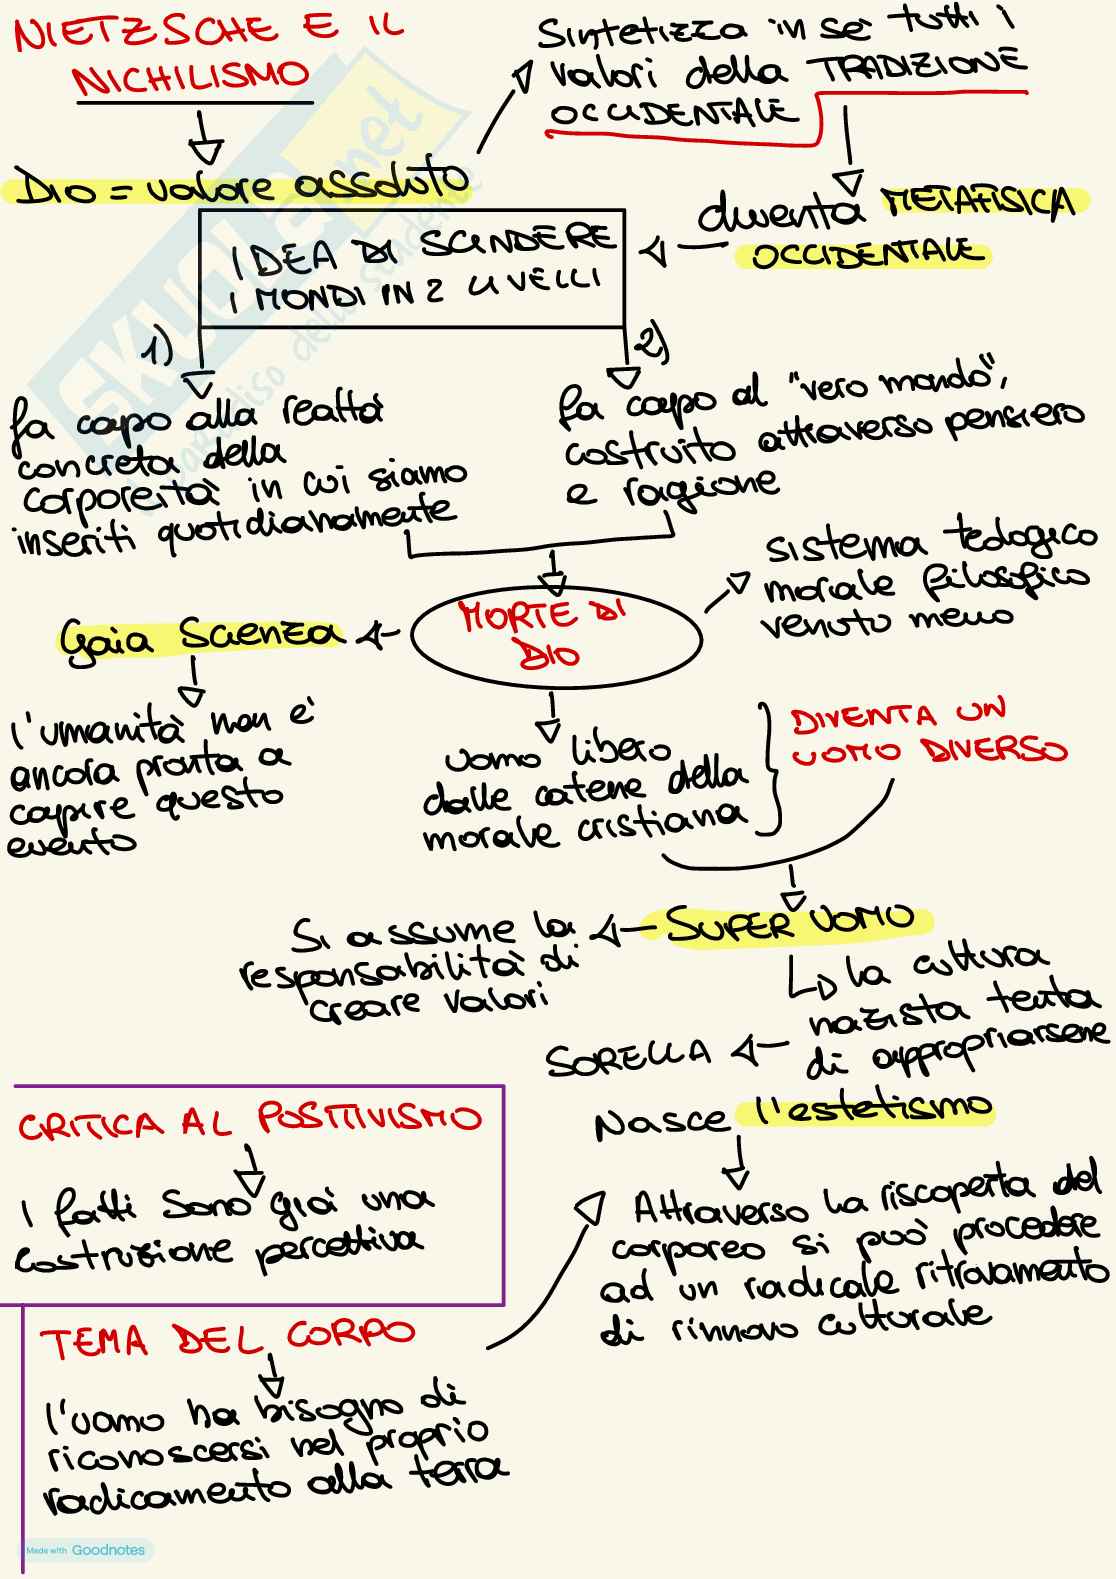 NIETZSCHE E IL
NICHILISMO
Sintetizza in sé tutti i
valori della TRADIZIONE
OCCIDENTALE
DIO = valore assoluto
diventa METAFISICA
OCCIDENTALE
IDEA DI SCINDERE
I MONDI IN 2 LIVELLI
1)
2)
fa capo alla realtà
concreta della
corporeità in cui siamo
inseriti quotidianamente
fa capo al "vero mondo",
costruito attraverso pensiero
e ragione
MORTE DI
DIO
sistema teologico
morale filosofico
venuto meno
Gaia Scienza
l'umanità non e'
ancora pronta a
capire questo
evento
uomo libero
dalle catene della
morale cristiana
DIVENTA UN
UOMO DIVERSO
SUPER UOMO
Si assume la
responsabilità di
creare valori
la cultura
nazista tenta
di appropriarsene
SORELLA
CRITICA AL POSITIVISMO
I fatti sono già una
costruzione percettiva
Nasce l'estetismo
Attraverso la riscoperta del
corporeo si può procedere
ad un radicale ritrovamento
di rinnovo culturale
TEMA DEL CORPO
l'uomo ha bisogno di
riconoscersi nel proprio
radicamento alla terra
SKUOLA.net
il paradiso dello studente
Made with Goodnotes